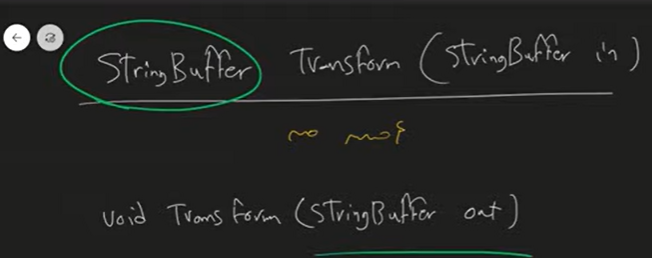 StringBuffer Transform (StringBuffer in)
no
void Transform (StringBuffer out)